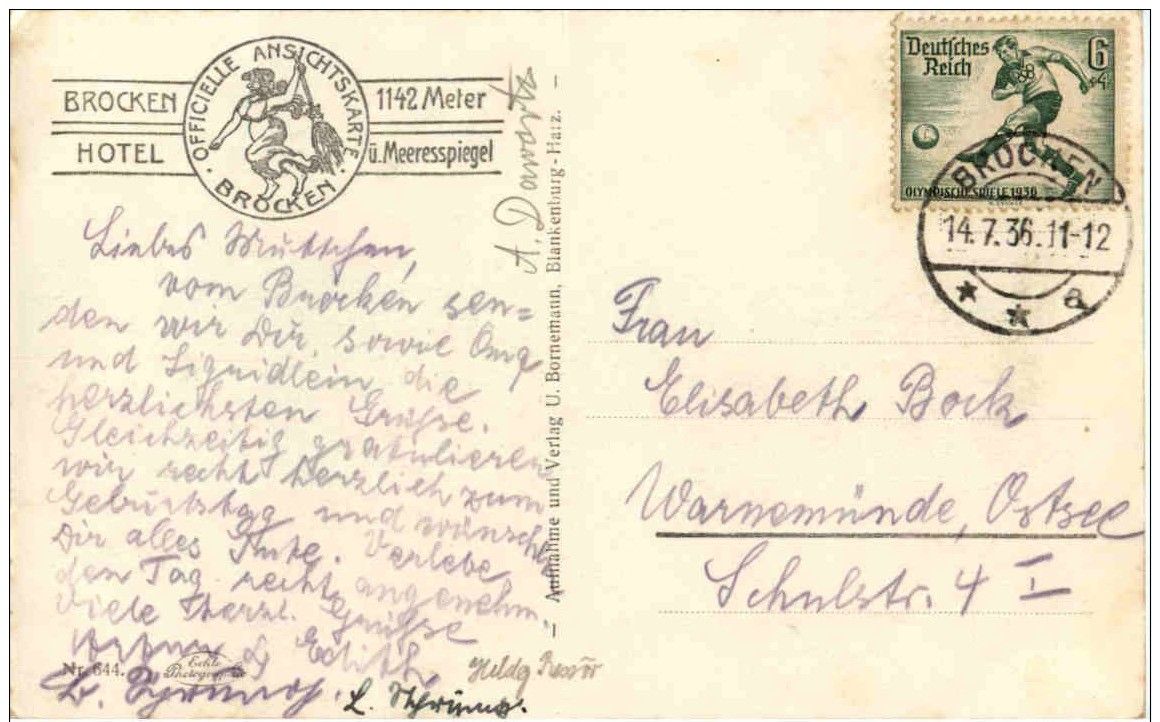 BROCKEN
HOTEL
OFFICIELLE ANSICHTSKARTE
BROCKEN
1142 Meter
ü. Meeresspiegel
Liebes Muttchen,
vom Brocken sen=
den wir Dir, sowie
und die
herzlichsten Grüsse.
Gleichzeitig gratulieren
wir recht herzlich zum
Geburtstag und wünschen
Dir alles Gute. Verlebe
den Tag recht angenehm.
Viele Herzl. Grüsse
Edith.
Nr. 644.
Echte
Photographie
L.
A.
— Aufnahme und Verlag U. Bornemann, Blankenburg-Harz. —
Deutsches
Reich
6
+4
OLYMPISCHE SPIELE 1936
BROCKEN
14.7.36.11-12
a
Frau
Elisabeth Bock
Warnemünde, Ostsee
Schulstr. 4 I